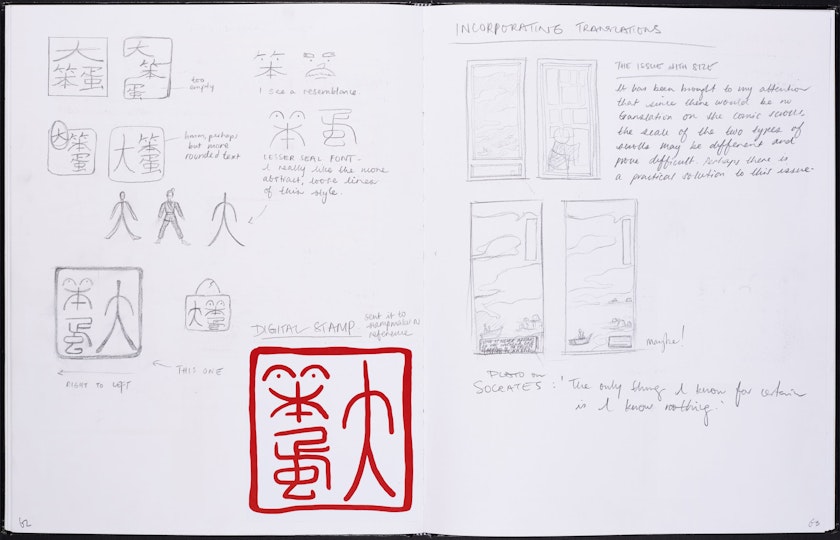 大
笨蛋
大
笨
蛋
too
empty
大
笨
蛋
大
笨
蛋
hmm, perhaps
but more
rounded text
笨
I see a resemblance
笨 蛋
LESSER SEAL FONT -
I really like the more
abstract, loose lines
of this style.
大
笨
蛋
大
大
笨
蛋
RIGHT TO LEFT
THIS ONE
DIGITAL STAMP
sent it to
reference
笨
蛋
大
62
INCORPORATING TRANSLATIONS
THE ISSUE WITH SIZE
It has been brought to my attention
that since there would be no
translation on the comic scrolls,
the scale of the two types of
scrolls may be different and
prove difficult. Perhaps there is
a practical solution to this issue.
maybe!
PLATO on
SOCRATES : 'The only thing I know for certain
is I know nothing.'
63